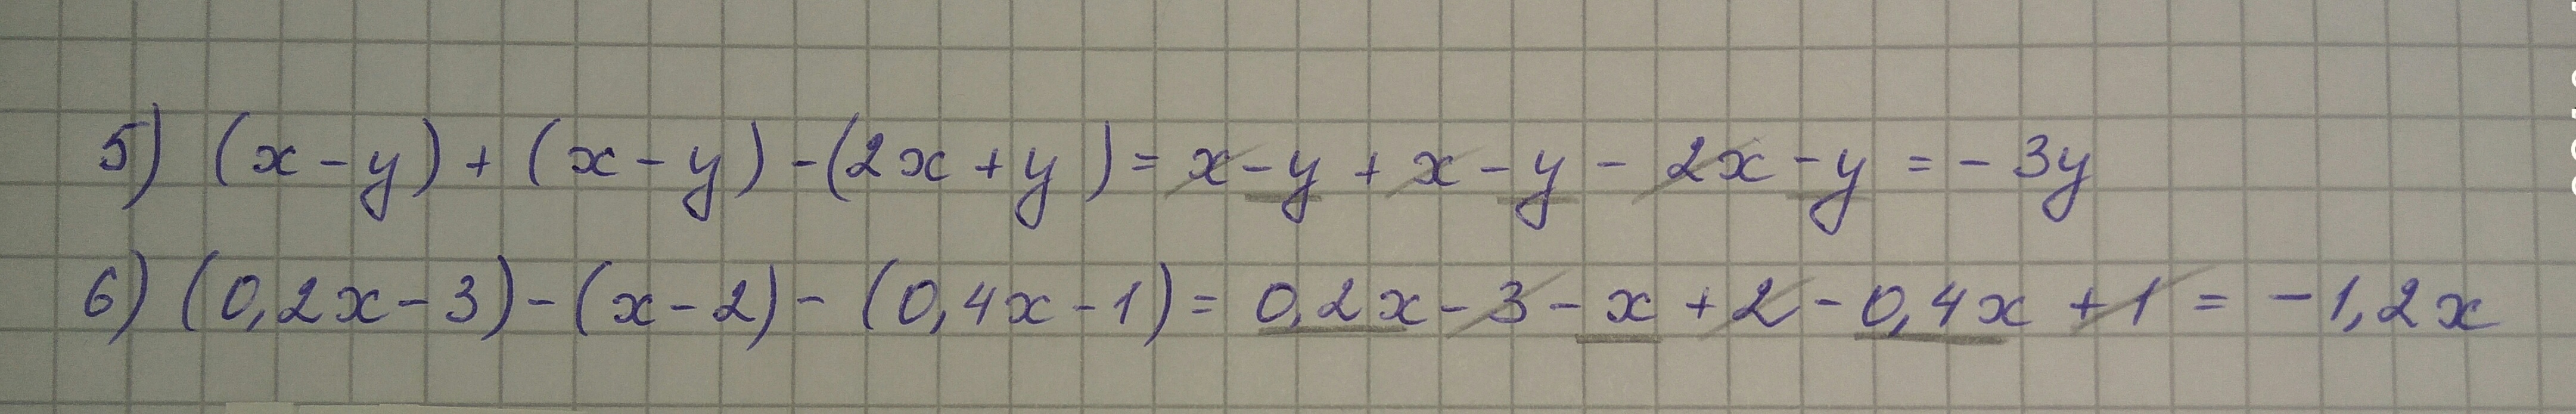 5) (x-y)+(x-y)-(2x+y)=x-y+x-y-2x-y=-3y
6) (0,2x-3)-(x-2)-(0,4x-1)=0,2x-3-x+2-0,4x+1=-1,2x